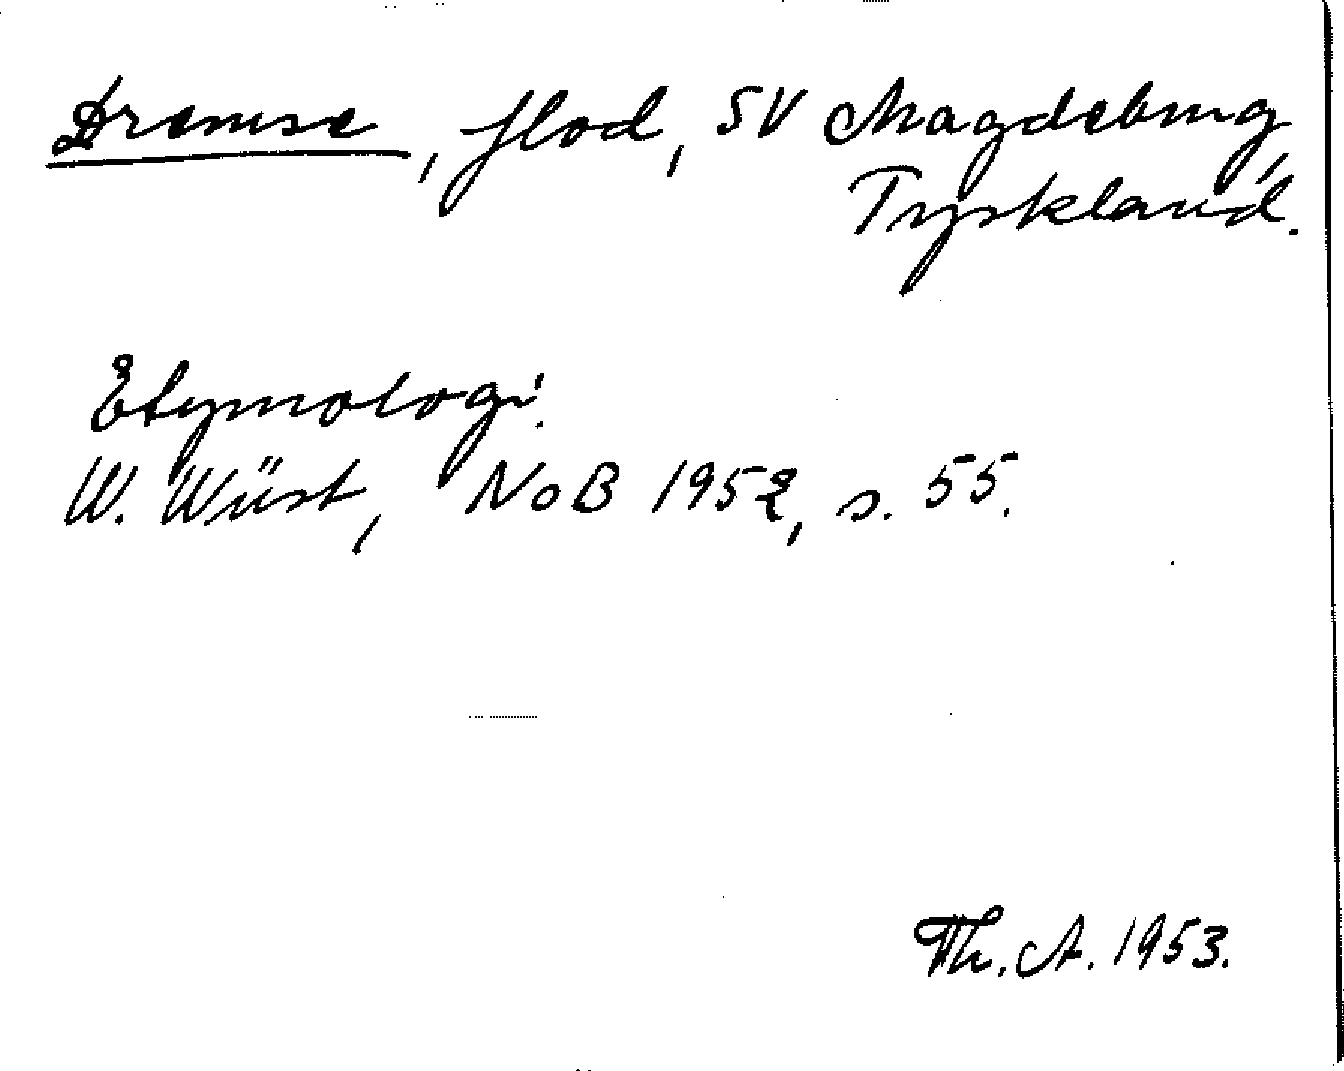 Dremse, flod, SV Magdeburg,
Tyskland.
Etymologi.
W. Wüst, NoB 1952, s. 55.
Th. A. 1953.